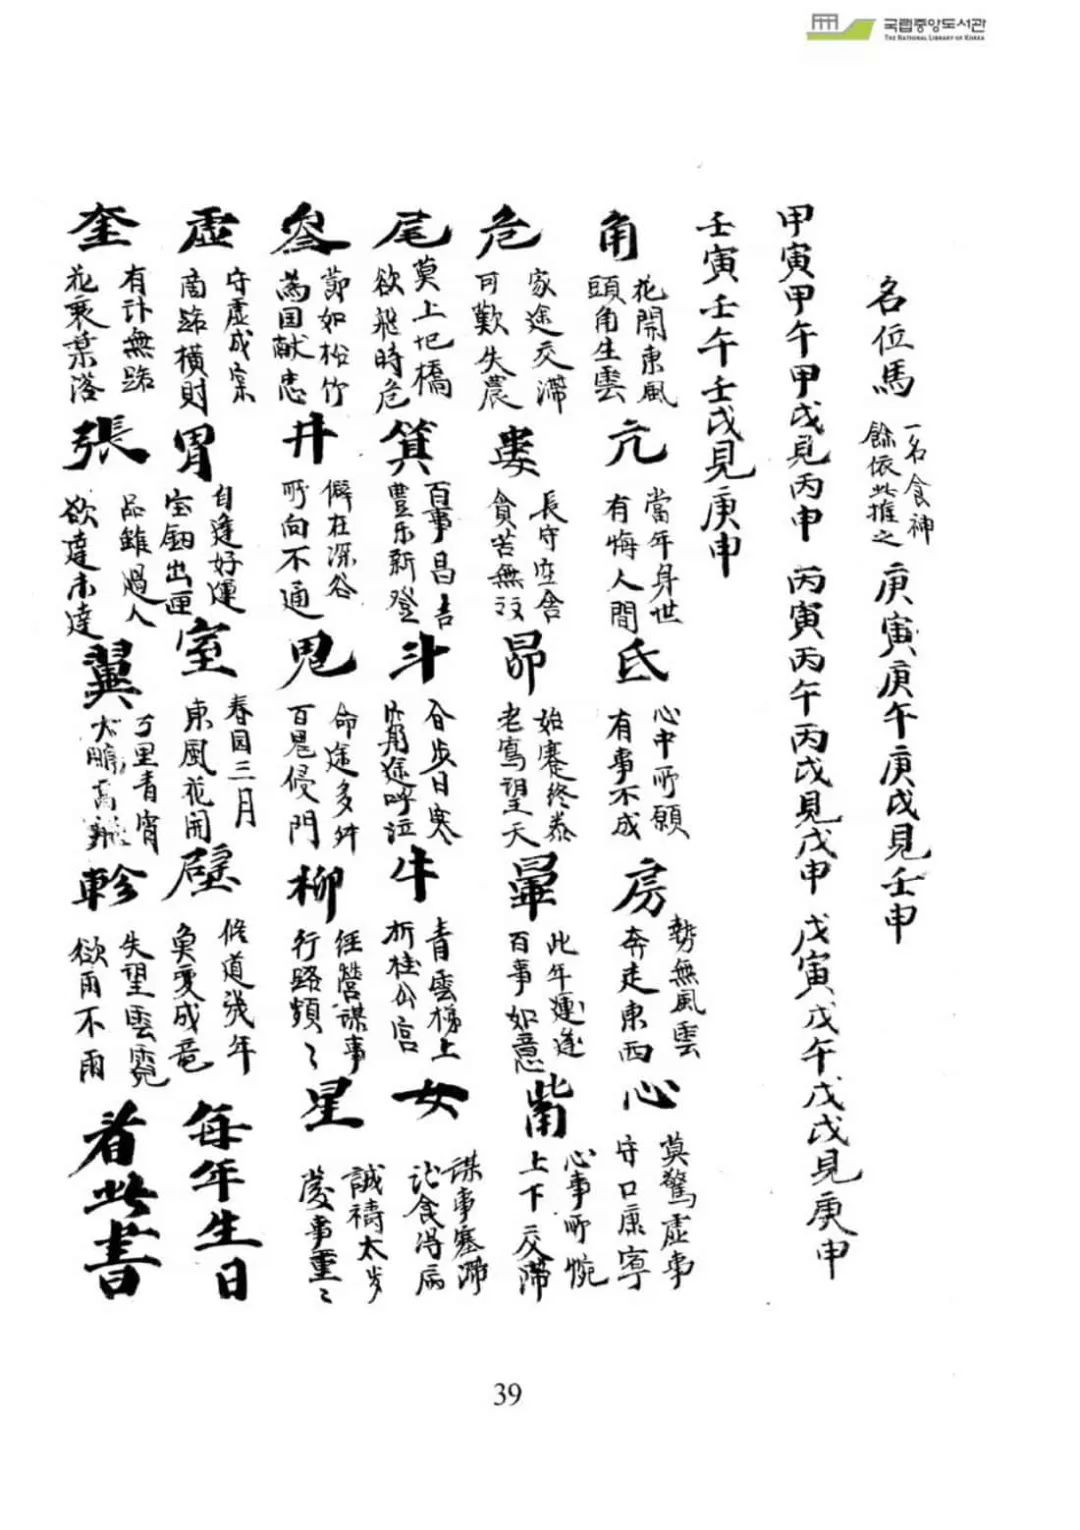 국립중앙도서관
THE NATIONAL LIBRARY OF KOREA
名位馬 一名食神 餘依此推之 庚寅庚午庚戌見壬申
甲寅甲午甲戌見丙申 丙寅丙午丙戌見戊申 戊寅戊午戊戌見庚申
壬寅壬午壬戌見庚申
角 花開東風 頭角生雲
亢 當年身世 有悔人間
氐 心中所願 有事不成
房 勢無風雲 奔走東西
心 莫驚虛事 守口康寧
危 家途交滯 可歎失農
婁 長守空舍 貪苦無
昴 始蹇終泰 老寫望天
畢 此年運逢 百事如意
觜 心事所惋 上下交滯
尾 莫上圯橋 欲飛時危
箕 百事昌吉 豊乐新登
斗 日寒 途呼泣
牛 青雲梯上 折桂公宮
女 謀事塞滯 食得病
叅 節如松竹 為国献忠
井 僻在深谷 所向不通
鬼 命途多舛 百鬼侵門
柳 経營謀事 行路頻〻
星 誠禱太岁 慶事重〻
虛 守虛成 商路橫財
胃 自逢好運 宝釰出匣
室 春园三月 東風花開
壁 修道幾年 魚变成竜
每年生日
奎 有計無路 花衰葉落
張 品雖過人 欲達未達
翼 万里青宵 大鵬高
軫 失望雲霓 欲雨不雨
看此書
39